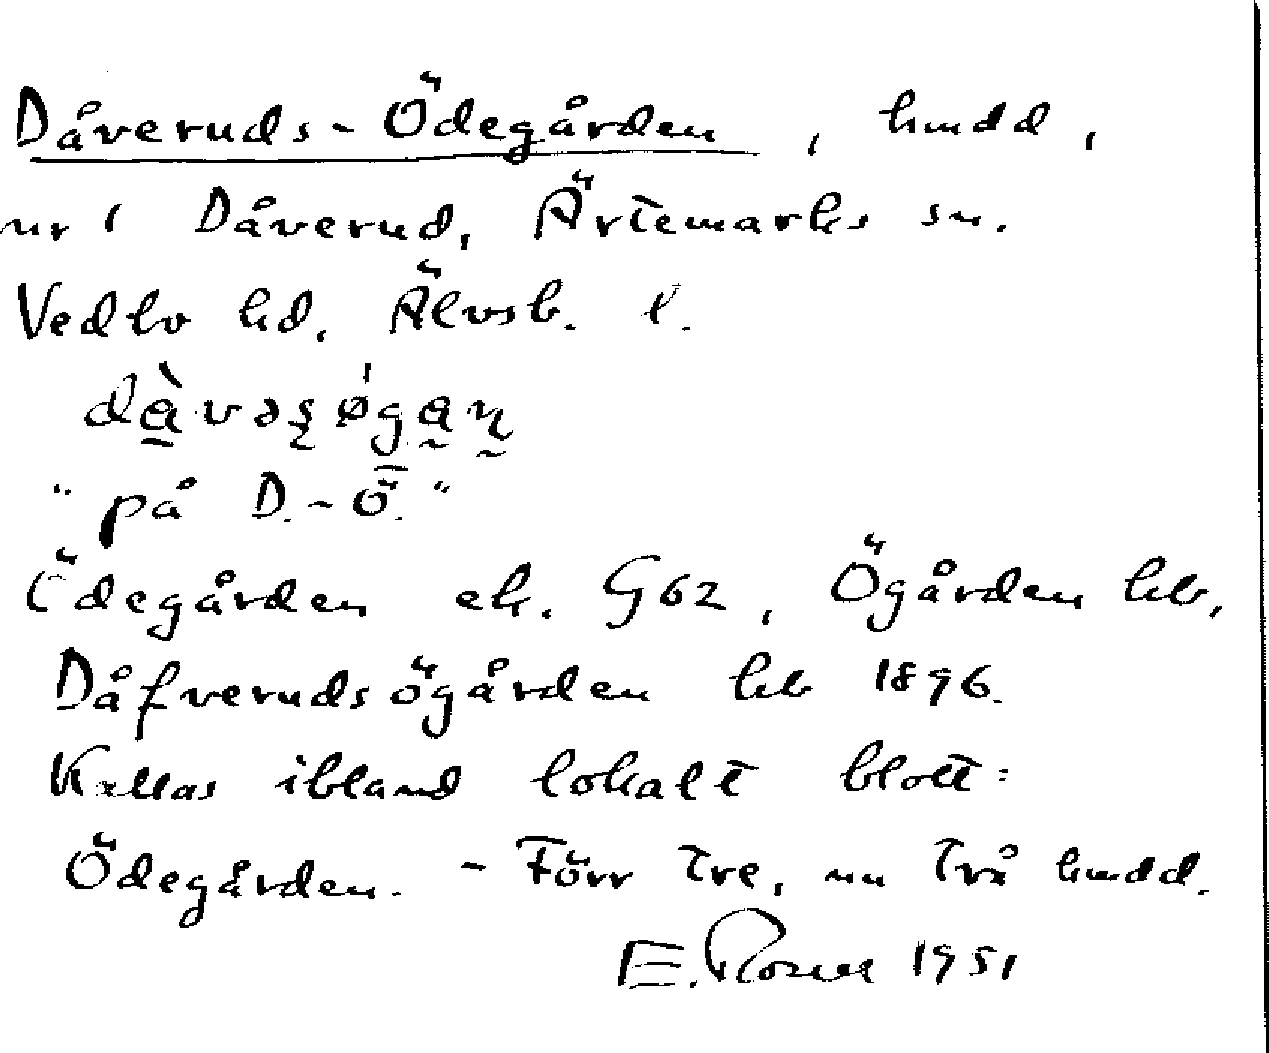 Dåveruds-Ödegården, hmdd,
nr 1 Dåverud, Ärtemarks sn.
Vedbo hd, Älvsb. l.
dàvəʂǿgaɳ
"på D.-Ö."
Ödegården ek. G62, Ögården kb,
Dåfverudsögården kb 1896.
Kallas ibland lokalt blott:
Ödegården. - Förr tre, nu två hmdd.
E. Rosell 1951